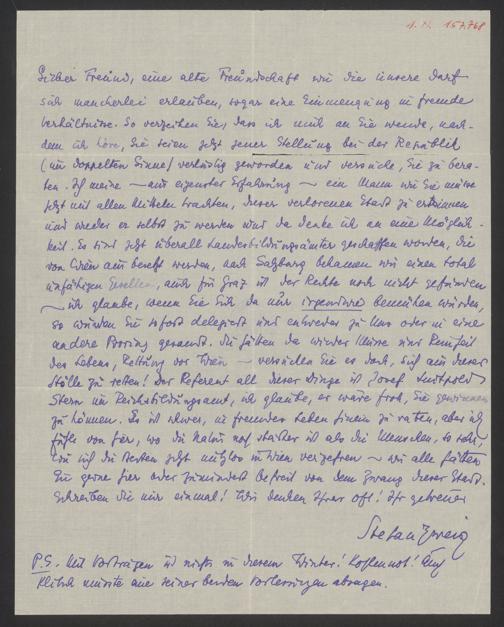 I. N. 157.768
Lieber Freund, eine alte Freundschaft wie die unsere darf
sich mancherlei erlauben, sogar eine Einmengung in fremde
Verhältnisse. So verzeihen Sie, dass ich mich an Sie wende, nach-
dem ich höre, Sie seien jetzt jener Stellung bei der Republik
(im doppelten Sinne) verlustig geworden und versuche, Sie zu bera-
ten. Ich meine – aus eigenster Erfahrung – ein Mann wie Sie müsse
jetzt mit allen Mitteln trachten, dieser verlorenen Stadt zu entrinnen
und wieder er selbst zu werden und da denke ich an eine Möglich-
keit. Es sind jetzt überall Landesbildungsämter geschaffen worden, die
von Wien aus besetzt werden, nach Salzburg bekamen wir einen total
unfähigen Gesellen, auch für Graz ist der Rechte noch nicht gefunden
– ich glaube, wenn Sie sich da nur irgendwie bemühen würden,
so würden Sie sofort delegiert und entweder zu uns oder in eine
andere Provinz gesandt. Sie hätten da wieder Musse und Reinheit
des Lebens, Rettung vor Wien – versuchen Sie es doch, sich auf diese
Stelle zu retten! Der Referent all dieser Dinge ist Josef Luitpold
Stern im Reichsbildungsamt, ich glaube, er wäre froh, Sie gewinnen
zu können. Es ist schwer, in fremdes Leben hinein zu raten, aber ich
fühle von hier, wo die Natur noch stärker ist als die Menschen, so sehr,
wie sich die Besten jetzt nutzlos in Wien verzehren – wir alle hätten
Sie gerne hier oder zumindest befreit von dem Zwang dieser Stadt.
Schreiben Sie mir einmal! Wir denken Ihrer oft! Ihr getreuer
Stefan Zweig
P.S. Mit Vorträgen ist nichts in diesem Winter! Kohlennot! Auch
musste eine seiner beiden Vorlesungen absagen.